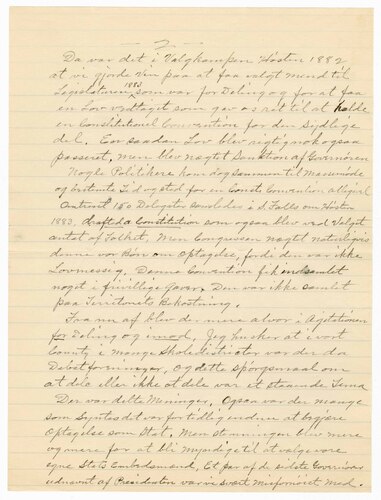 7
Da var det i Valgkampen Hösten 1882
at vi gjorde Vin paa at faa valgt mend til
Legislaturen 1883 som var for Deling og for at faa
en Lov vedtaget som gav os ret til at kalde
en Constitutionel Convention for den Sydlige
del. En saadan Lov blev rigtignok ogsaa
passeret, men blev nægtet Sanktion af Governören
Nogle Politikere kom dog sammen til Massemöde
og bestemte Tid og sted for en Consts Convention alligevel
Omtrent 150 Delegater samledes i S. Falls om Hösten
1883, drafted a Constitution som ogsaa blev ved Valget
antat af Folket, Men Congressen nægtet naturligvis
denne vor Bön om Optagelse, fordi den var ikke
Lovmessig. Denne Convention fik indsamlet
noget i frivillige Gaver. Den var ikke samlet
paa Territoriets Bekostning.
Fra nu af blev der mere alvor i Agitationen
for Deling og imod, Jeg husker at i vort
County i mange Skoledistricter var der da
Debat foreninger, og dette spörgsmaal om
at dele eller ikke at dele var et staaende Tema
Der var delte Meninger. Ogsaa var der mange
som Syntes det var for tidlig endnu at begjære
Optagelse som Stat. Men stemningen blev mere
og mere for at bli Myndige til at vælge vore
egne Stats Embedsmend, Et par af de sidste Governörer
udnevnt af Presidenten var vi svært misfornöiet med.